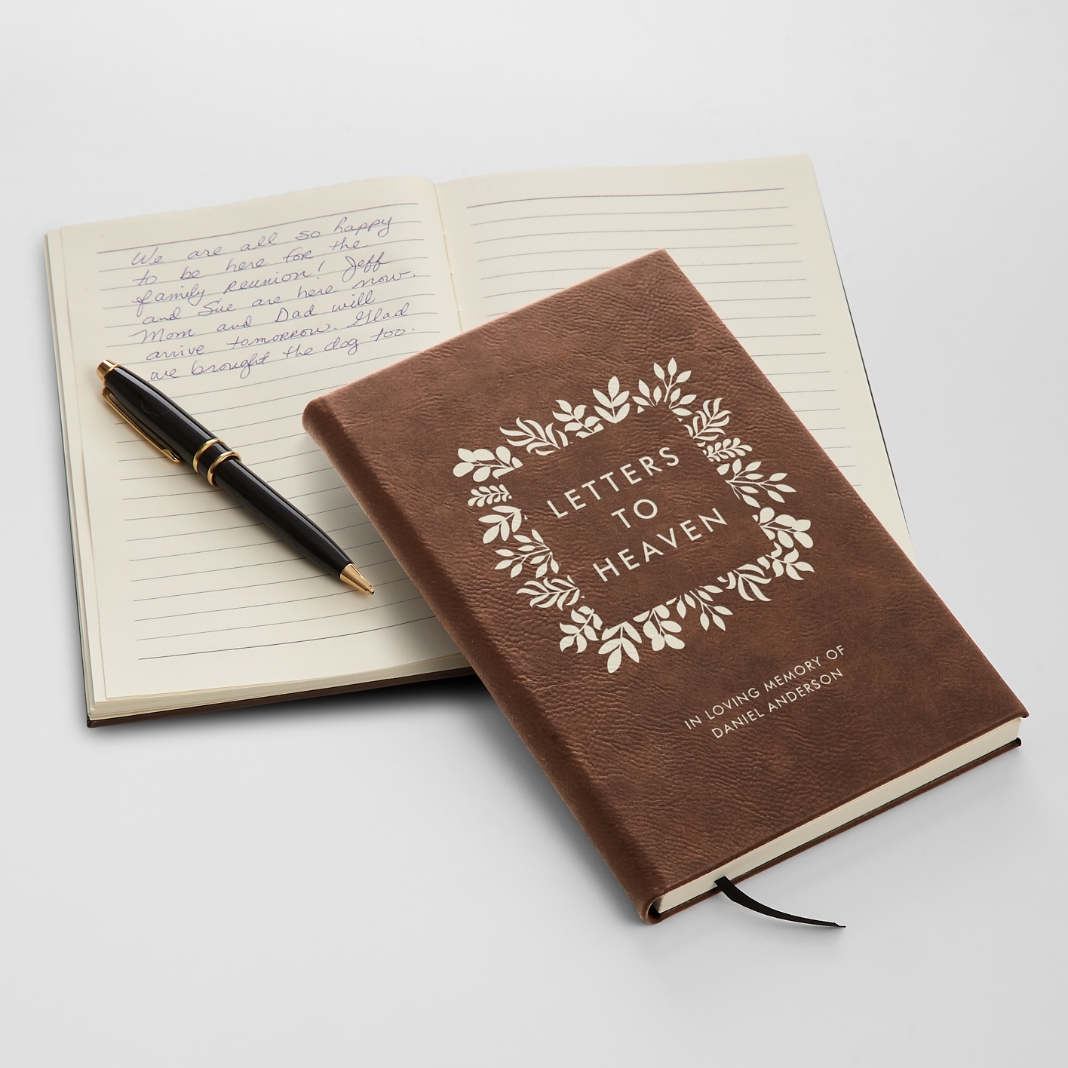 We are all so happy
to be here for the
family reunion! Jeff
and Sue are here now.
Mom and Dad will
arrive tomorrow. Glad
we brought the dog too.
LETTERS
TO
HEAVEN
IN LOVING MEMORY OF
DANIEL ANDERSON